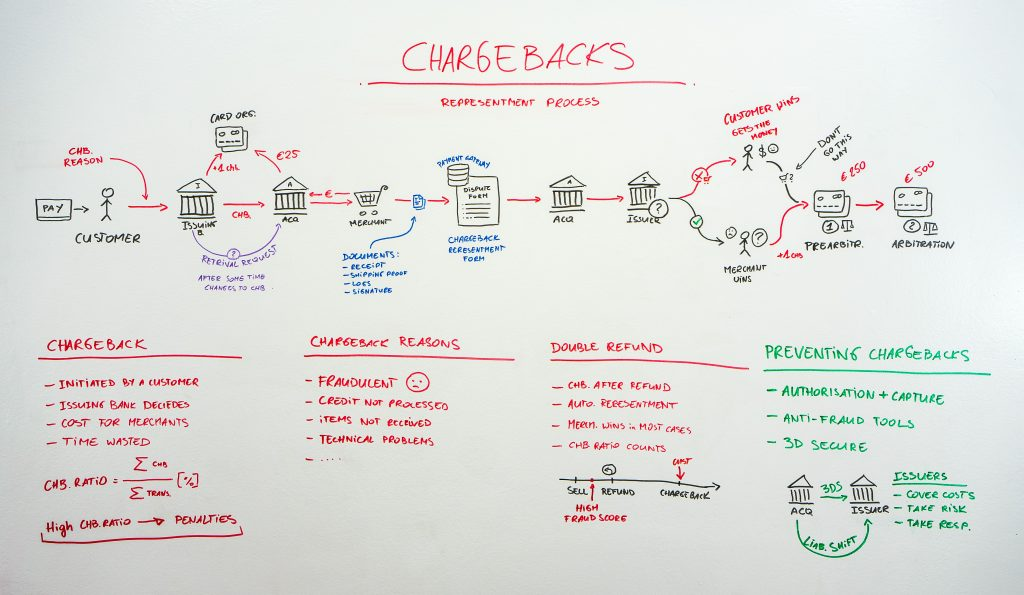 CHARGEBACKS
REPRESENTMENT PROCESS
CHB.
REASON
PAY
CUSTOMER
CARD ORG.
+1 CHB.
€25
I
ISSUING
B.
CHB.
A
ACQ
?
RETRIVAL REQUEST
AFTER SOME TIME
CHANGES TO CHB.
€
MERCHANT
DOCUMENTS:
– RECEIPT
– SHIPPING PROOF
– LOGS
– SIGNATURE
PAYMENT GATEWAY
DISPUTE
FORM
CHARGEBACK
REPRESENTMENT
FORM
A
ACQ
I
ISSUER
?
CUSTOMER WINS
GETS THE
MONEY
$
DON'T
GO THIS
WAY
?
MERCHANT
WINS
+1 CHB
€250
1
PREARBITR.
€500
2
ARBITRATION
CHARGEBACK
– INITIATED BY A CUSTOMER
– ISSUING BANK DECIEDES
– COST FOR MERCHANTS
– TIME WASTED
CHB. RATIO = ∑ CHB / ∑ TRANS. [%]
High CHB. RATIO → PENALTIES
CHARGEBACK REASONS
– FRAUDULENT
– CREDIT NOT PROCESSED
– ITEMS NOT RECEIVED
– TECHNICAL PROBLEMS
– .....
DOUBLE REFUND
– CHB. AFTER REFUND
– AUTO. REPRESENTMENT
– MERCH. WINS in MOST CASES
– CHB RATIO COUNTS
COST
SELL
REFUND
CHARGEBACK
HIGH
FRAUD SCORE
PREVENTING CHARGEBACKS
– AUTHORISATION + CAPTURE
– ANTI-FRAUD TOOLS
– 3D SECURE
ACQ
3DS
ISSUER
LIAB. SHIFT
ISSUERS
– COVER COSTS
– TAKE RISK
– TAKE RESP.